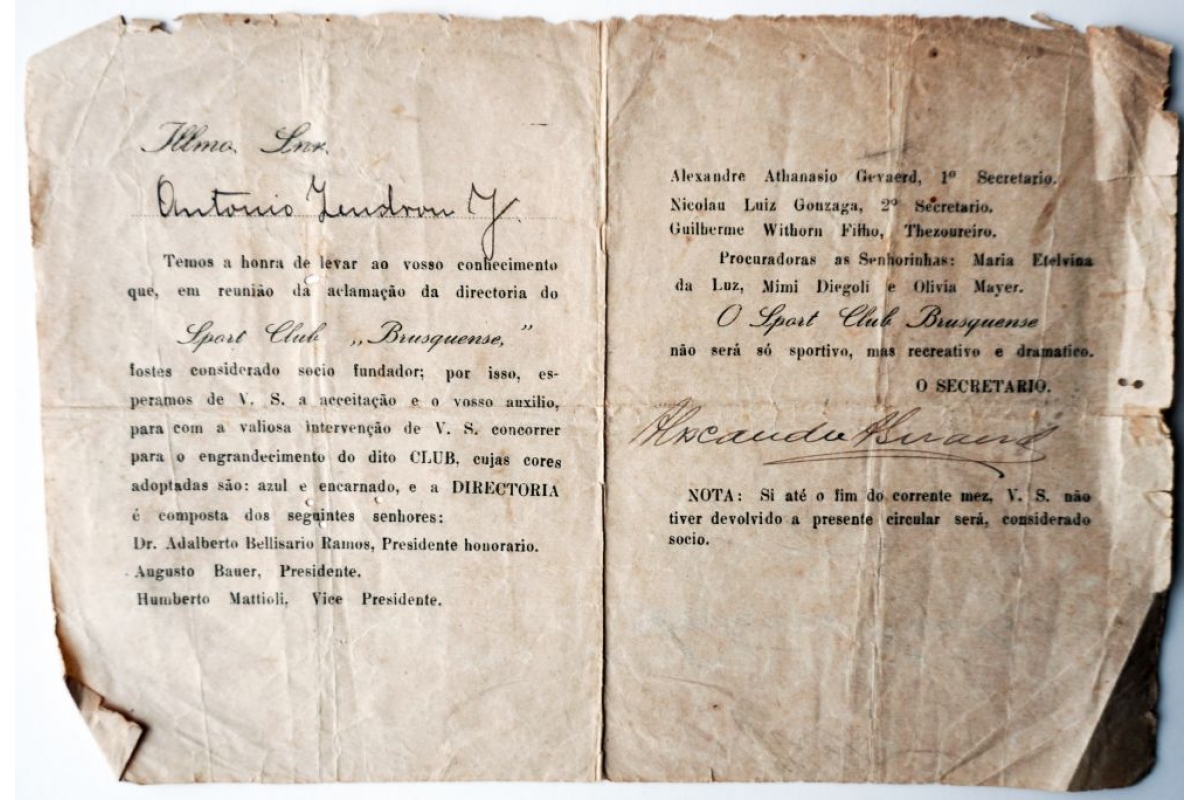 Illmo. Snr.
Antonio
Temos a honra de levar ao vosso conhecimento
que, em reunião da aclamação da directoria do
Sport Club „Brusquense,”
fostes considerado socio fundador; por isso, es-
peramos de V. S. a acceitação e o vosso auxilio,
para com a valiosa intervenção de V. S. concorrer
para o engrandecimento do dito CLUB, cujas cores
adoptadas são: azul e encarnado, e a DIRECTORIA
é composta dos seguintes senhores:
Dr. Adalberto Bellisario Ramos, Presidente honorario.
Augusto Bauer, Presidente.
Humberto Mattioli, Vice Presidente.
Alexandre Athanasio Gevaerd, 1º Secretario.
Nicolau Luiz Gonzaga, 2º Secretario.
Guilherme Withorn Filho, Thezoureiro.
Procuradoras as Senhorinhas: Maria Etelvina
da Luz, Mimi Diegoli e Olivia Mayer.
O Sport Club Brusquense
não será só sportivo, mas recreativo e dramatico.
O SECRETARIO.
NOTA: Si até o fim do corrente mez, V. S. não
tiver devolvido a presente circular será, considerado
socio.